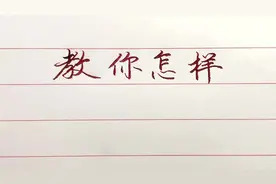 教你怎样